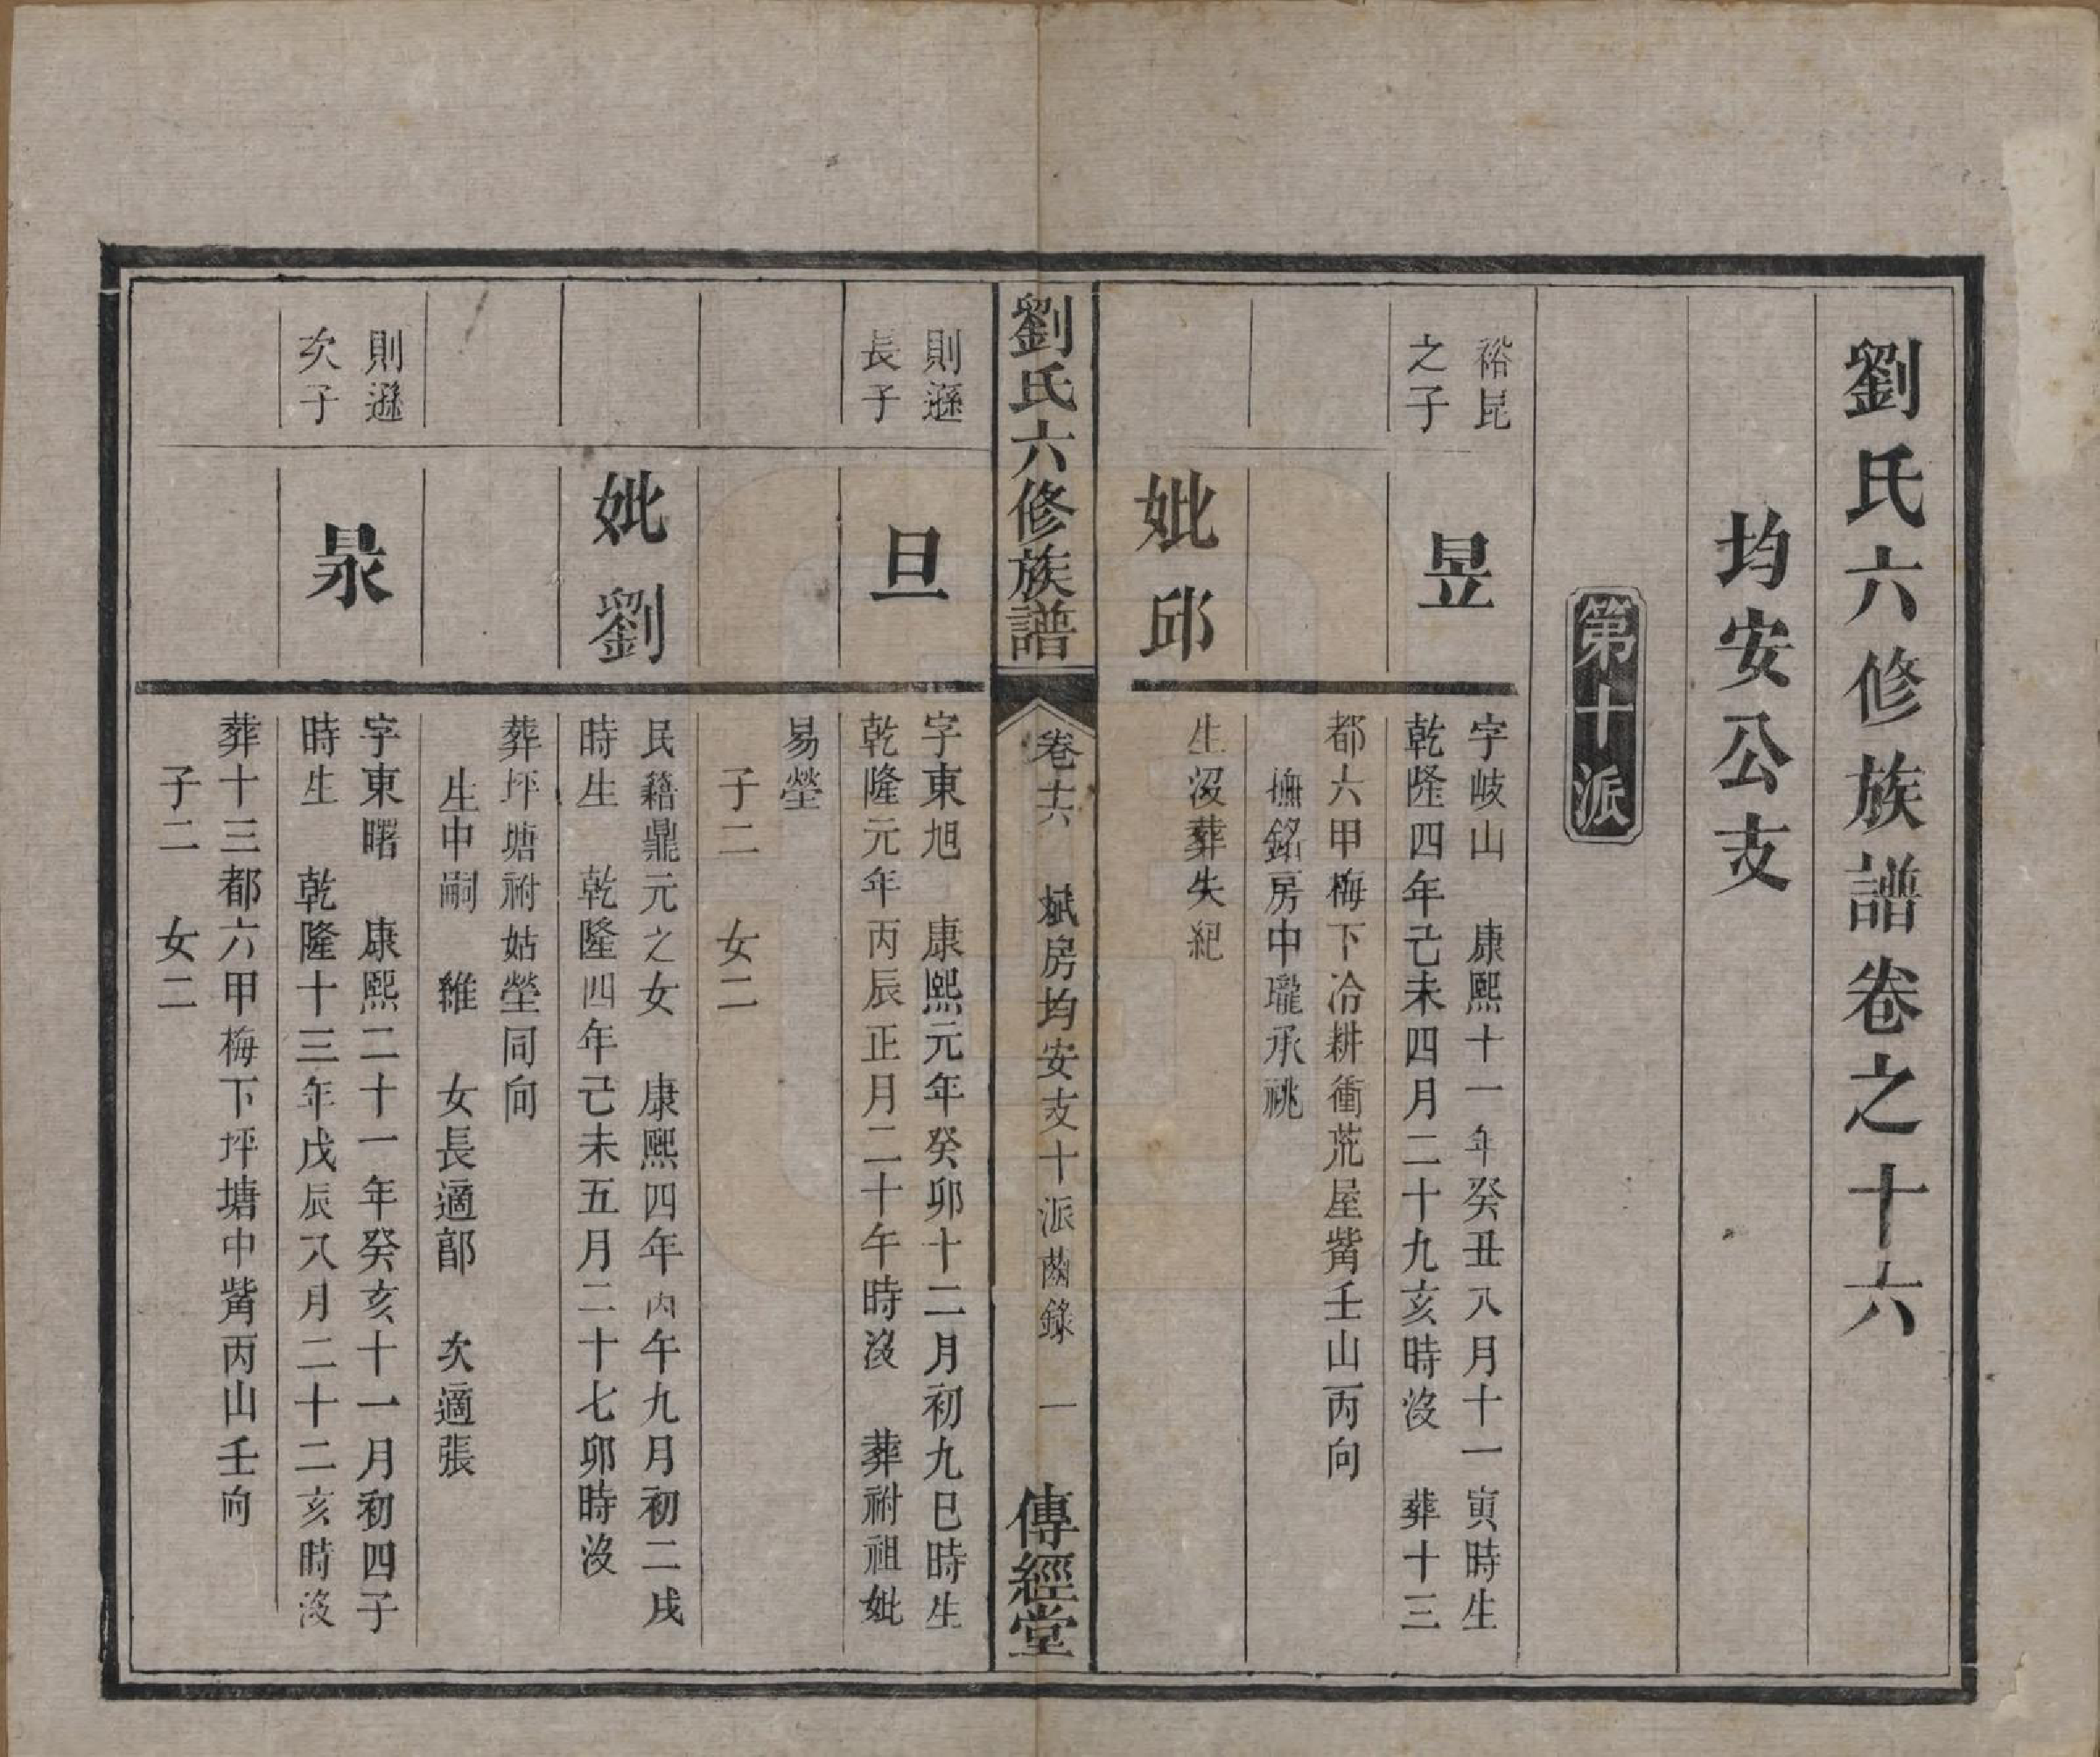 劉氏六修族譜卷之十六
均安公支
第十派
裕昆
之子
昱
字岐山　康熙十一年癸丑八月十一寅時生
乾隆四年己未四月二十九亥時沒　葬十三
都六甲梅下冷耕衝荒屋觜壬山丙向
撫銘房中瓏承祧
妣邱
生沒葬失紀
劉氏六修族譜
卷十六　斌房均安支十派齒錄　一
傳經堂
則遜
長子
旦
字東旭　康熙元年癸卯十二月初九巳時生
乾隆元年丙辰正月二十午時沒　葬祔祖妣
易塋
子二　女二
妣劉
民籍鼎元之女　康熙四年丙午九月初二戌
時生　乾隆四年己未五月二十七卯時沒
葬坪塘祔姑塋同向
生中嗣　維　女長適郶　次適張
則遜
次子
字東曙　康熙二十一年癸亥十一月初四子
時生　乾隆十三年戊辰八月二十二亥時沒
葬十三都六甲梅下坪塘中觜丙山壬向
子二　女二